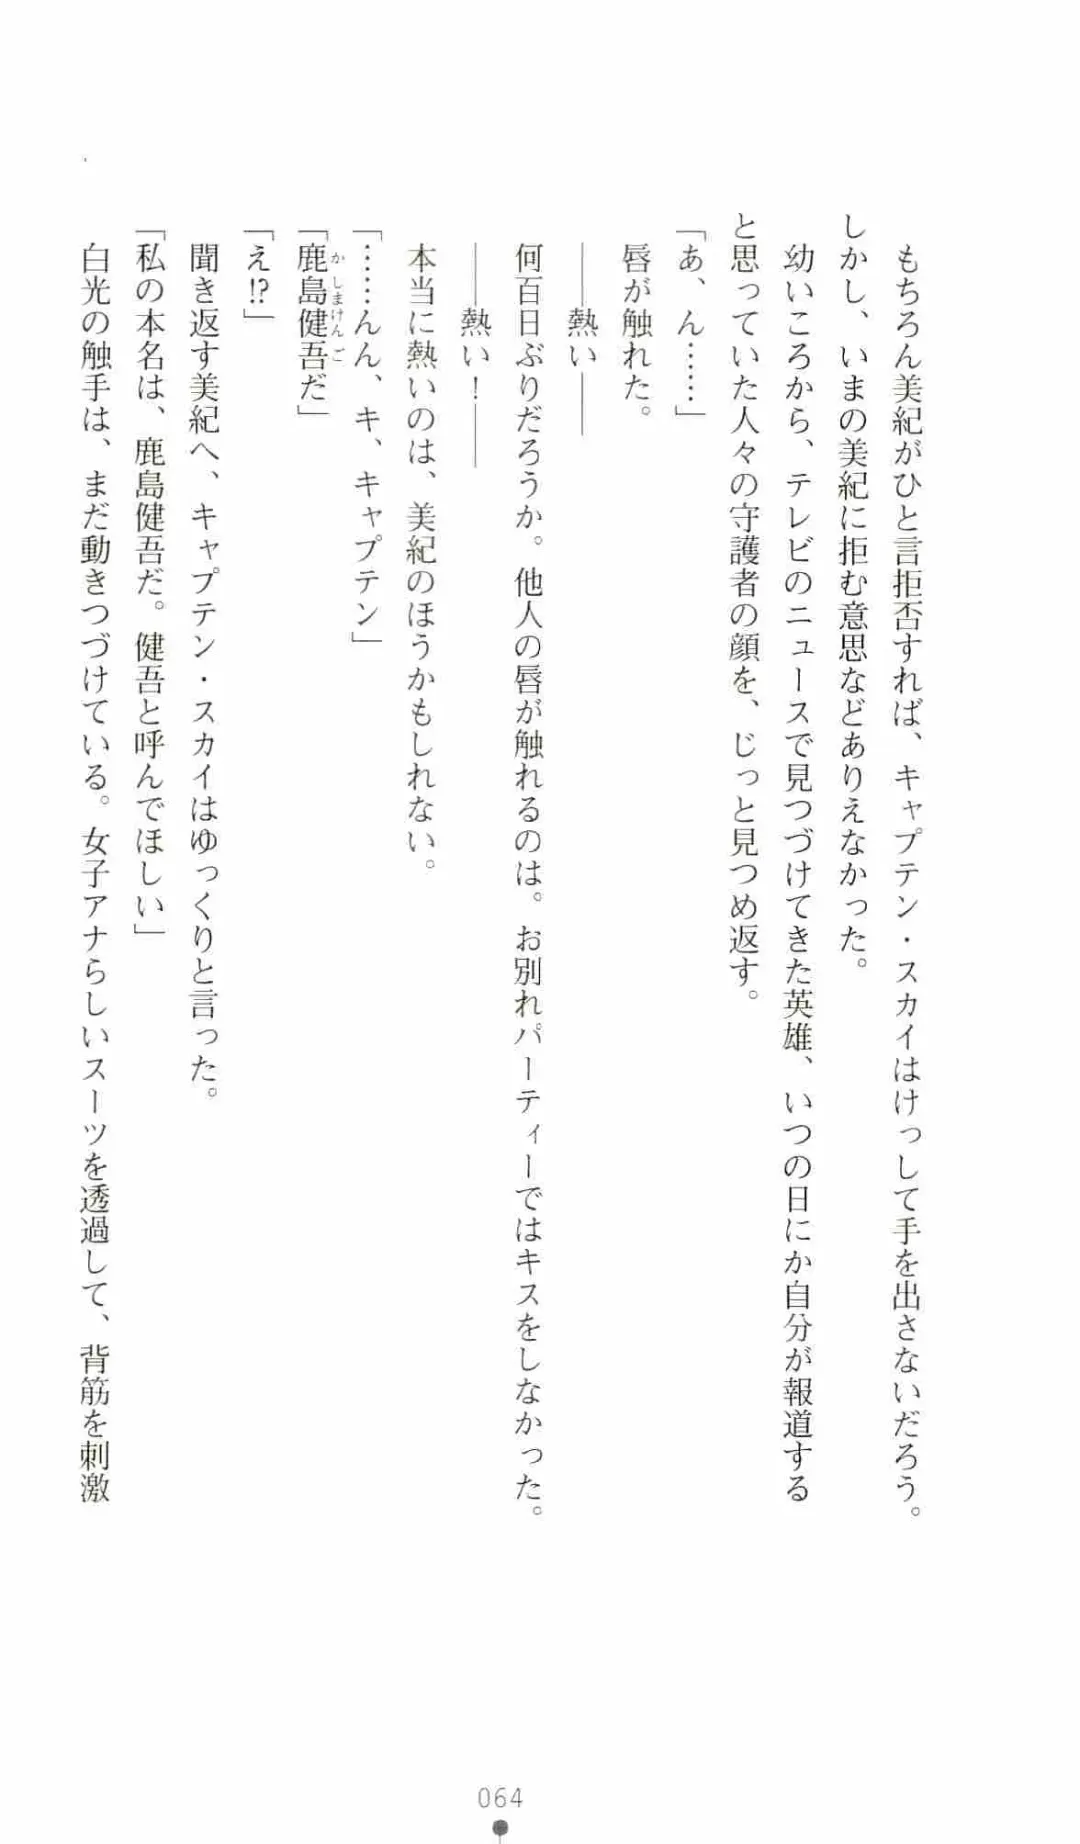 もちろん美紀がひと言拒否すれば、キャプテン・スカイはけっして手を出さないだろう。
しかし、いまの美紀に拒む意思などありえなかった。
幼いころから、テレビのニュースで見つづけてきた英雄、いつの日にか自分が報道する
と思っていた人々の守護者の顔を、じっと見つめ返す。
「あ、ん……」
唇が触れた。
――熱い――
何百日ぶりだろうか。他人の唇が触れるのは。お別れパーティーではキスをしなかった。
――熱い！――
本当に熱いのは、美紀のほうかもしれない。
「……んん、キ、キャプテン」
「鹿島健吾だ」
かしまけんご
「え!?」
聞き返す美紀へ、キャプテン・スカイはゆっくりと言った。
「私の本名は、鹿島健吾だ。健吾と呼んでほしい」
白光の触手は、まだ動きつづけている。女子アナらしいスーツを透過して、背筋を刺激
064